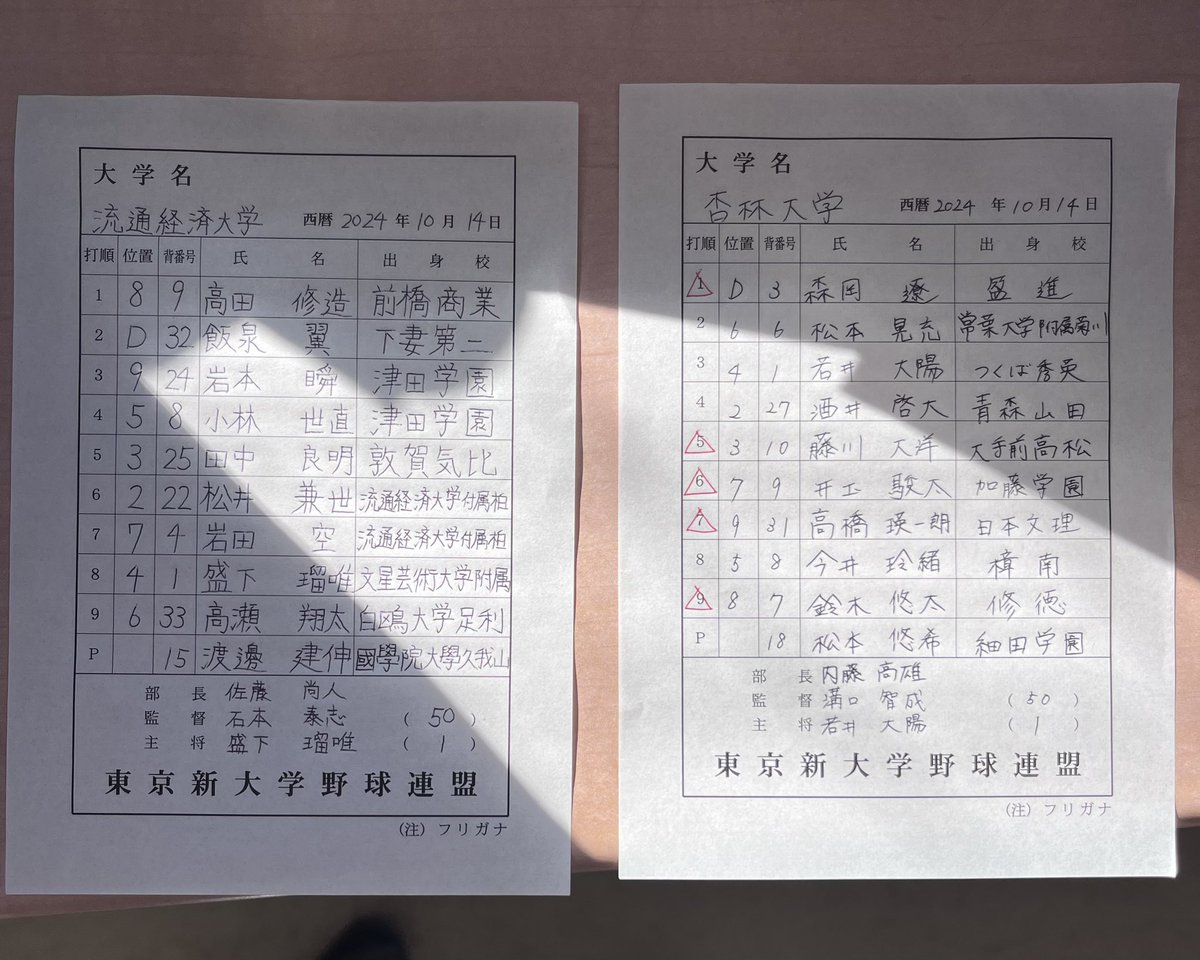 大学名
流通経済大学 西暦 2024 年 10 月 14 日
打順 位置 背番号 氏 名 出 身 校
1 8 9 高田 修造 前橋商業
2 D 32 飯泉 翼 下妻第二
3 9 24 岩本 瞬 津田学園
4 5 8 小林 世直 津田学園
5 3 25 田中 良明 敦賀気比
6 2 22 松井 兼世 流通経済大学付属柏
7 7 4 岩田 空 流通経済大学付属柏
8 4 1 盛下 瑠唯 文星芸術大学附属
9 6 33 高瀬 翔太 白鴎大学足利
P 15 渡邊 建伸 國學院大學久我山
部 長 佐藤 尚人
監 督 石本 泰志 ( 50 )
主 将 盛下 瑠唯 ( 1 )
東京新大学野球連盟
(注) フリガナ
大学名
杏林大学 西暦 2024 年 10 月 14 日
打順 位置 背番号 氏 名 出 身 校
1 D 3 森岡 遼 盛進
2 6 6 松本 晃充 常葉大学附属菊川
3 4 1 若井 大陽 つくば秀英
4 2 27 酒井 啓大 青森山田
5 3 10 藤川 大洋 大手前高松
6 7 9 井上 駿太 加藤学園
7 9 31 高橋 瑛一朗 日本文理
8 5 8 今井 玲緒 樟南
9 8 7 鈴木 悠太 修徳
P 18 松本 悠希 細田学園
部 長 内藤 高雄
監 督 溝口 智成 ( 50 )
主 将 若井 大陽 ( 1 )
東京新大学野球連盟
(注) フリガナ